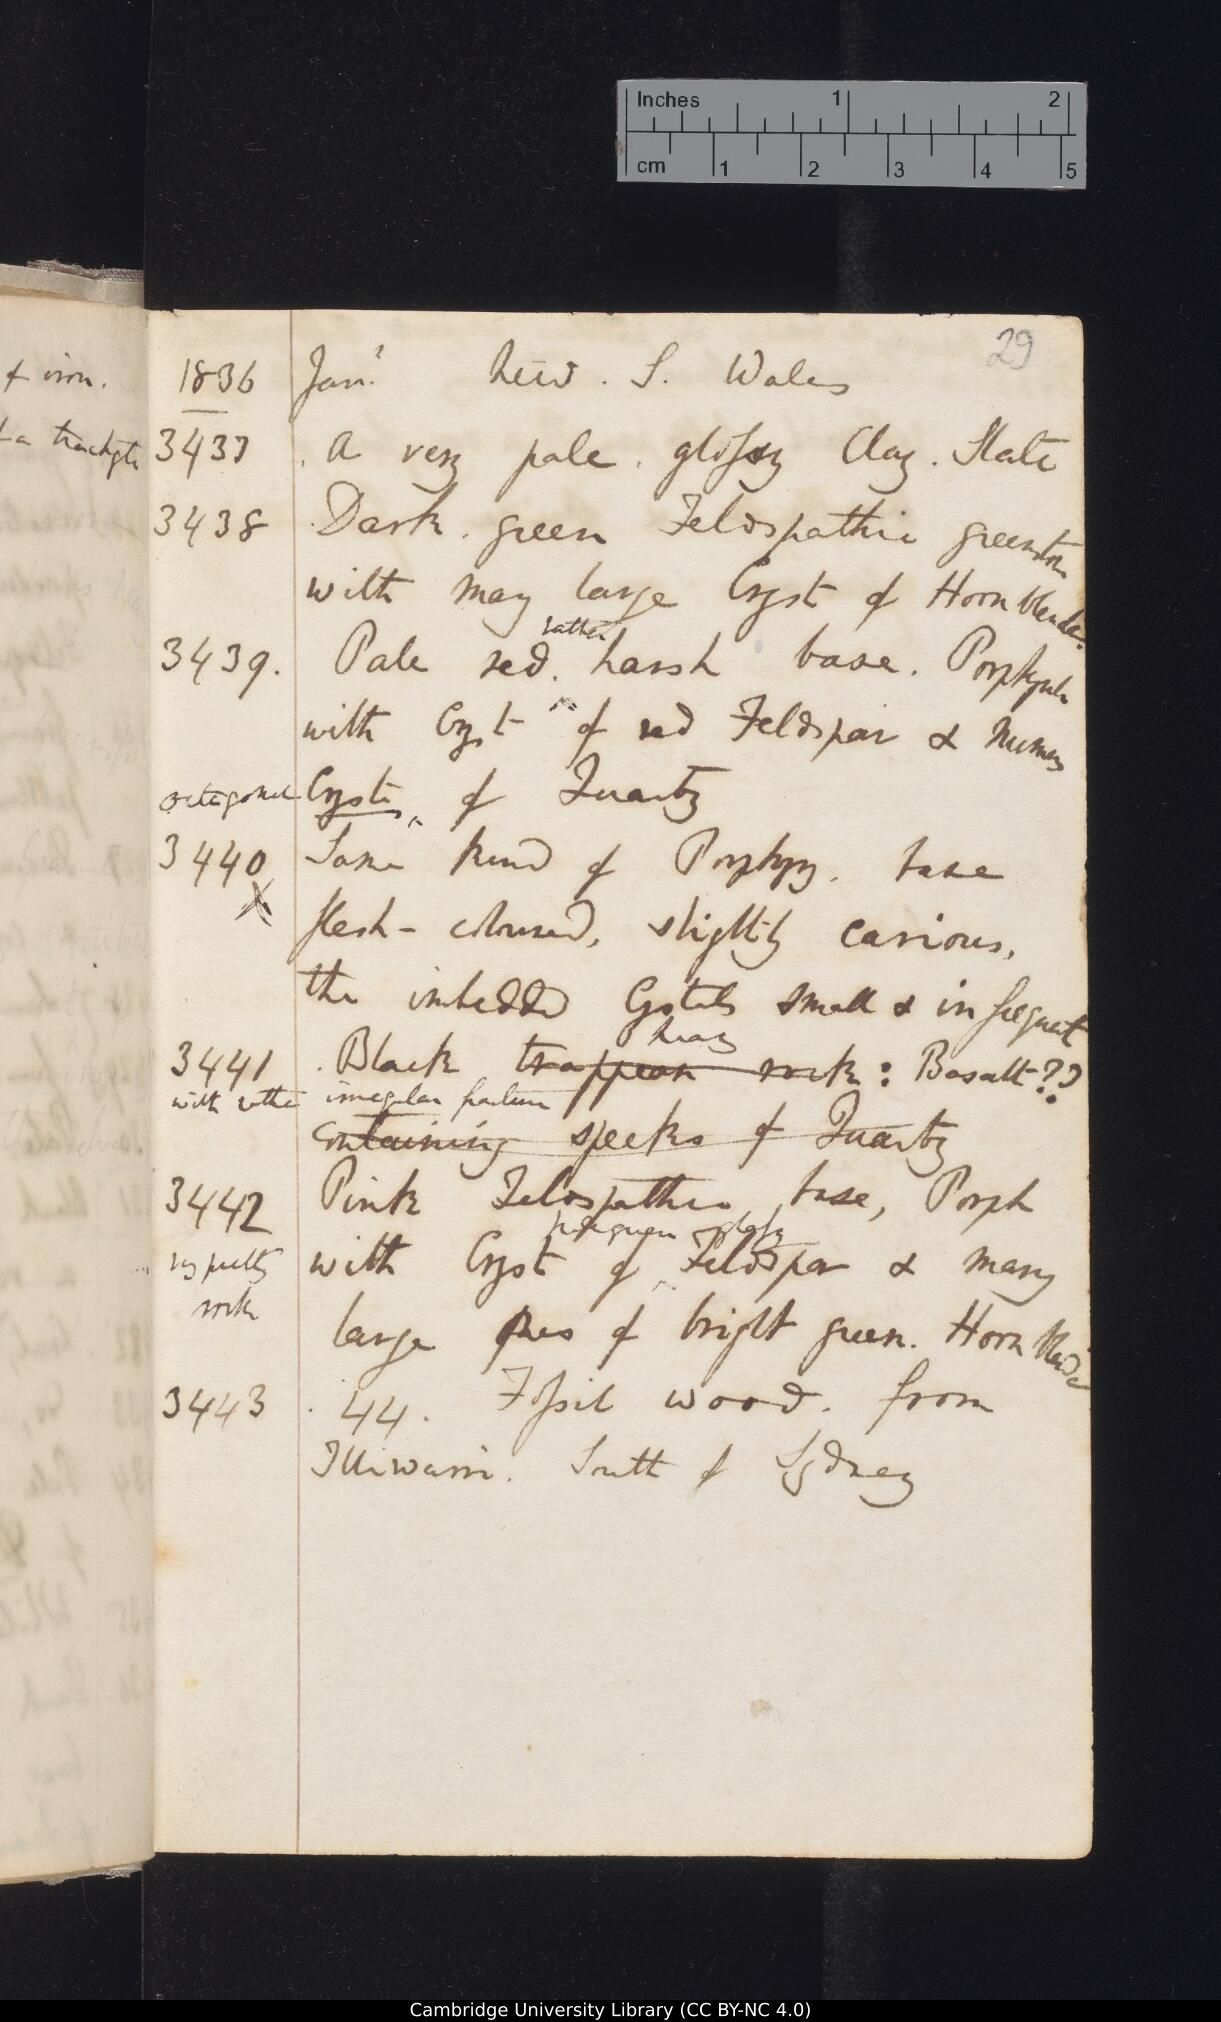 Inches 1 2
cm 1 2 3 4 5
29
of iron.
1836 Jan.y New. S. Wales
3437 . A very pale. glossy Clay. Slate
3438 . Dark. green Feldspathic greenstone
with many large Cryst of Hornblende.
rather
3439. Pale red. harsh base. Porphyry
with Cryst of red Feldspar & numerous
octagonal Crysts of Quartz
3440 Same kind of Porphyry. base
X flesh-coloured, slightly carious.
the imbedded Crystals small & infrequent
heavy
3441 . Black trappean rock: Basalt??
with rather irregular fracture
containing specks of Quartz
3442 Pink Feldspathic base, Porph
pale green glassy
very pretty with Cryst of Feldspar & many
rock
large ones of bright green. Hornblende
3443 . 44. Fossil wood. from
Illiwarri. South of Sydney
Cambridge University Library (CC BY-NC 4.0)